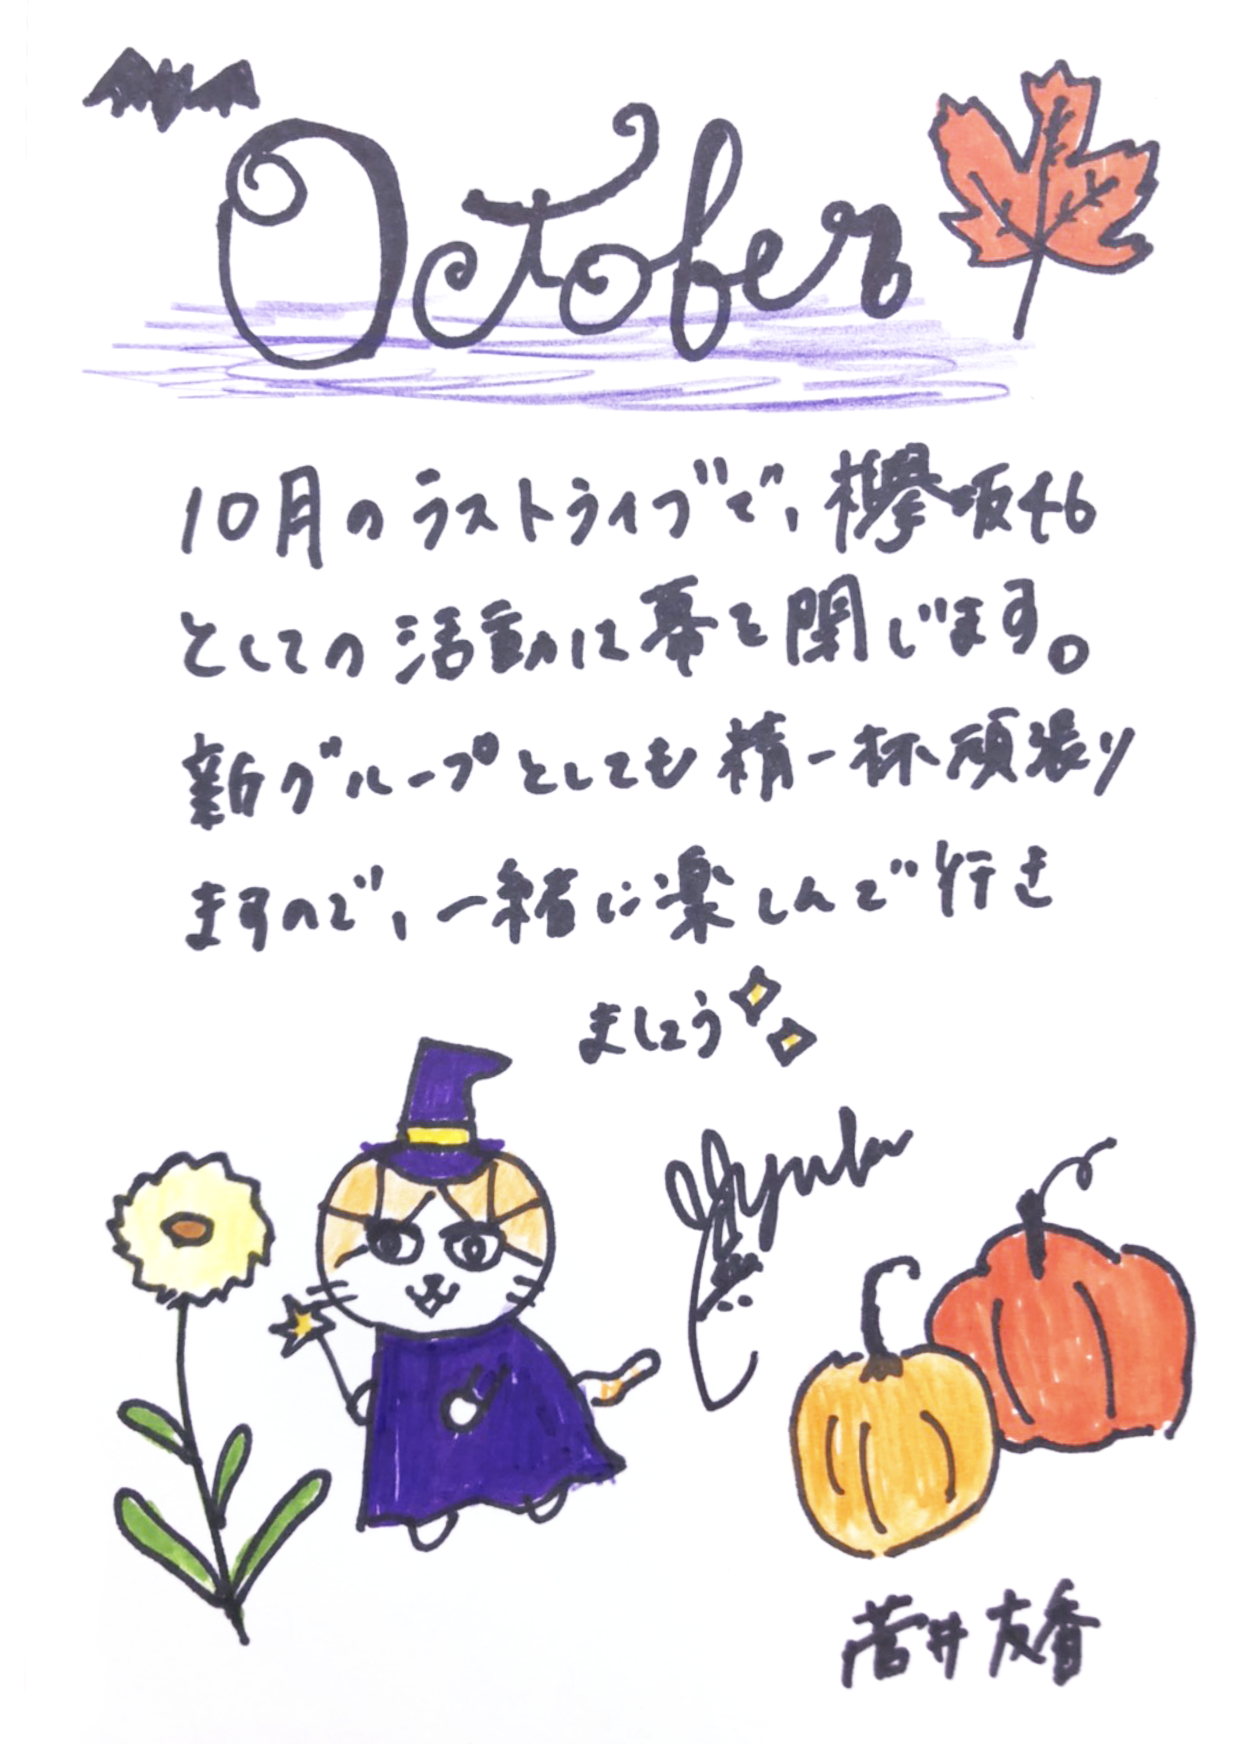 October
10月のラストライブで、欅坂46
としての活動に幕を閉じます。
新グループとしても精一杯頑張り
ますので、一緒に楽しんで行き
ましょう
菅井友香